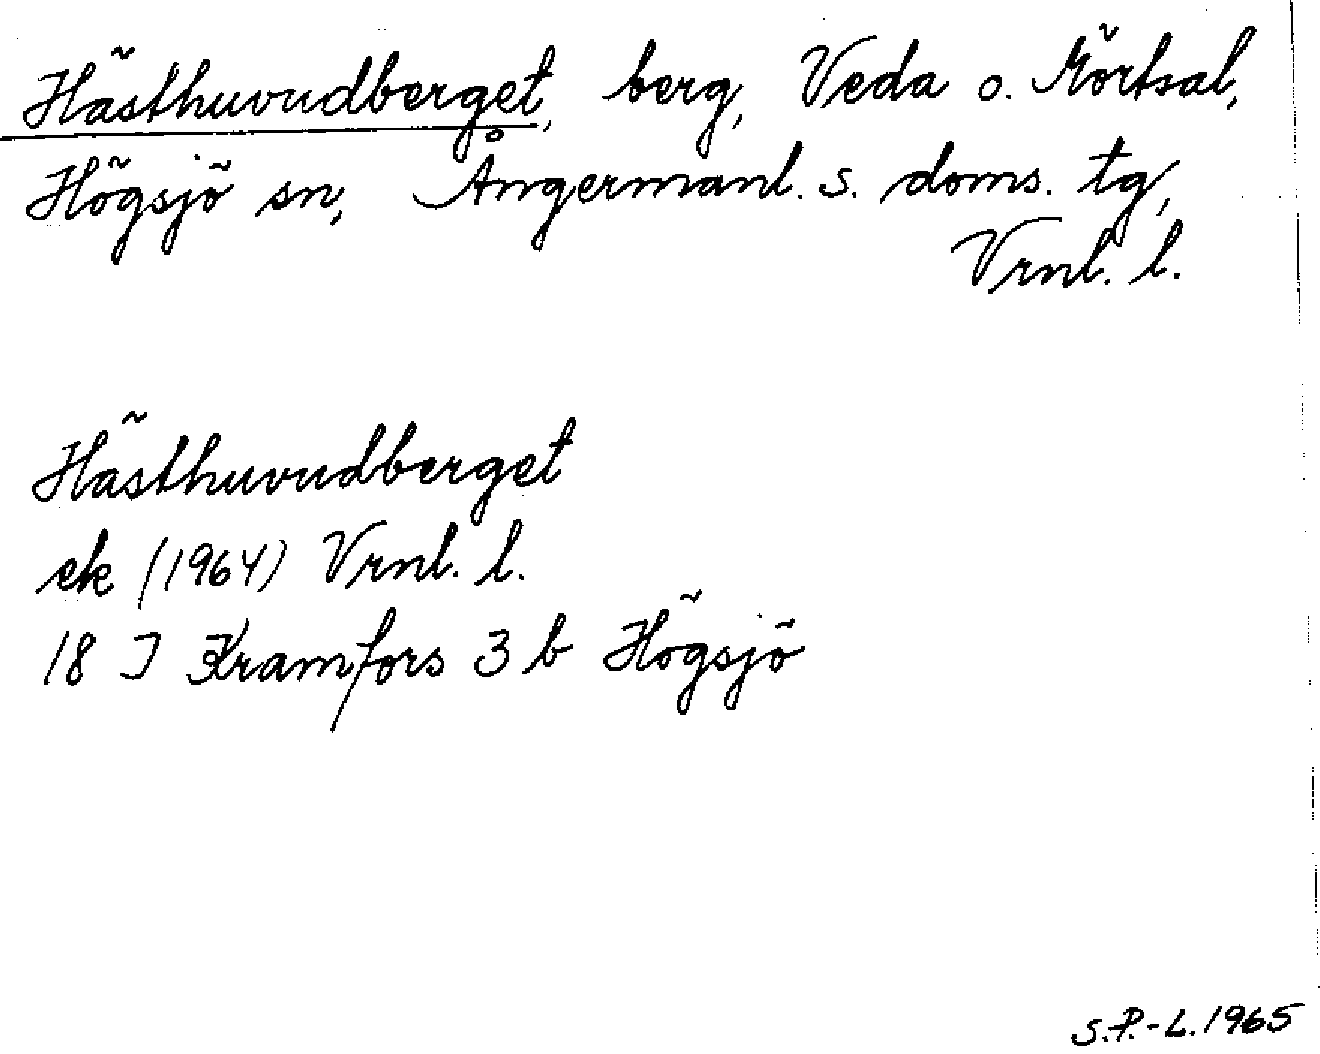 Hästhuvudberget, berg, Veda o. Mörtsal,
Högsjö sn, Ångermanl. s. doms. tg,
Vrnl. l.
Hästhuvudberget
ek (1964) Vrnl. l.
18 J Kramfors 3 b Högsjö
S.P.-L. 1965